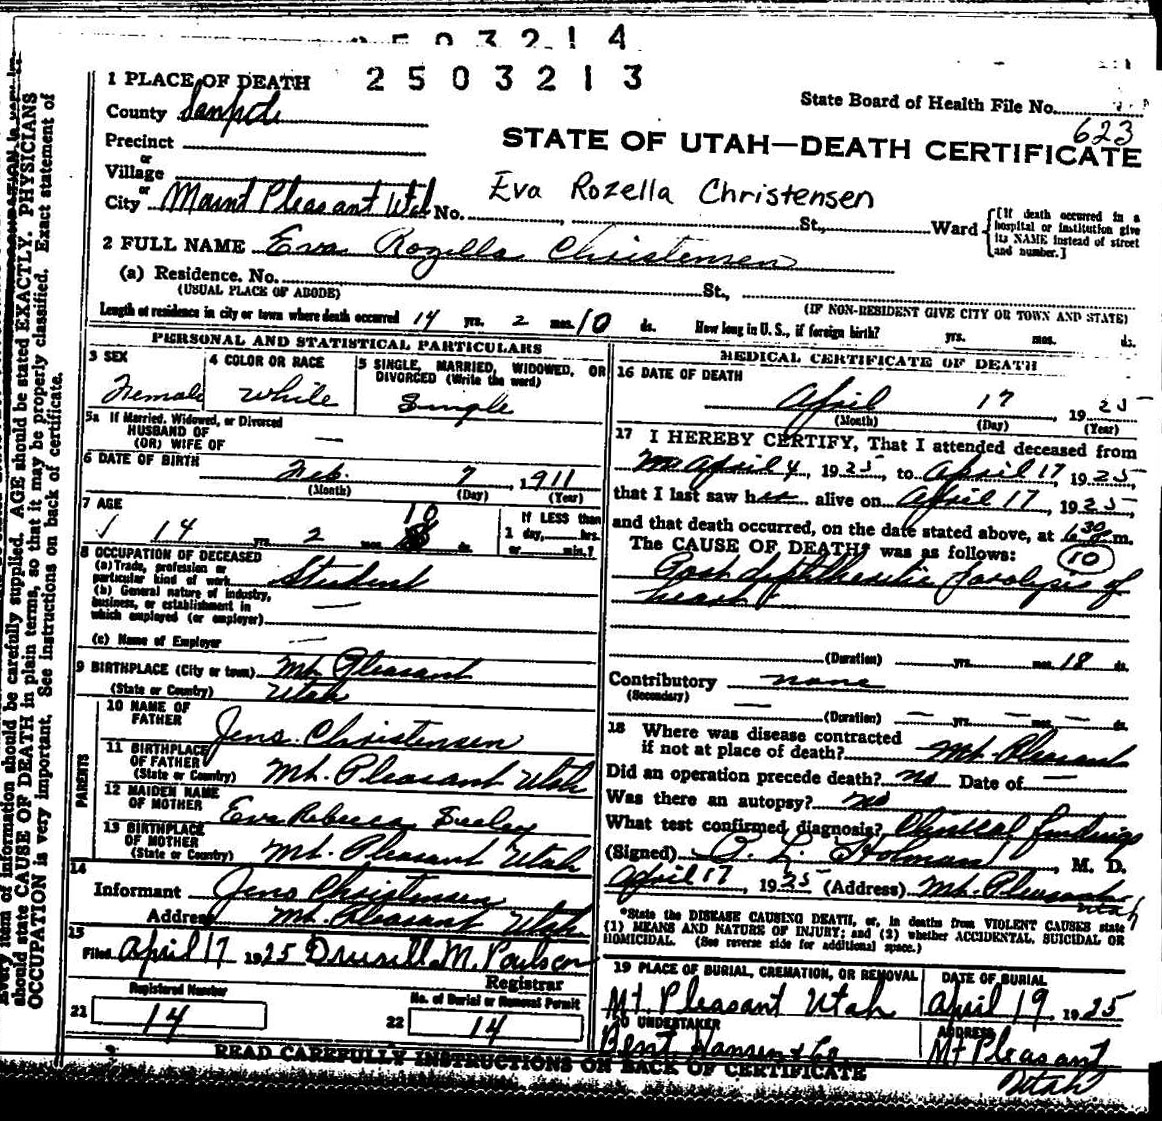 2503214
2503213
1 PLACE OF DEATH
State Board of Health File No.
623
County Sanpete
STATE OF UTAH—DEATH CERTIFICATE
Precinct
or
Village
or
City Mount Pleasant Utah No. St., Ward
Eva Rozella Christensen
{[If death occurred in a hospital or institution give its NAME instead of street and number.]
2 FULL NAME Eva Rozella Christensen
(a) Residence. No. St.,
(USUAL PLACE OF ABODE)
(IF NON-RESIDENT GIVE CITY OR TOWN AND STATE)
Length of residence in city or town where death occurred 14 yrs. 2 mos. 10 ds. How long in U. S., if foreign birth? yrs. mos. ds.
PERSONAL AND STATISTICAL PARTICULARS
3 SEX
Female
4 COLOR OR RACE
White
5 SINGLE, MARRIED, WIDOWED, OR DIVORCED (Write the word)
Single
5a If Married, Widowed, or Divorced
HUSBAND OF
(OR) WIFE OF —
6 DATE OF BIRTH
Feb. 7, 1911
(Month) (Day) (Year)
7 AGE
14 yrs. 2 mos. 10 ds.
If LESS than
1 day, hrs.
or min.?
8 OCCUPATION OF DECEASED
(a) Trade, profession or
particular kind of work Student
(b) General nature of industry,
business, or establishment in
which employed (or employer) —
(c) Name of Employer —
9 BIRTHPLACE (City or town) Mt. Pleasant
(State or Country) Utah
PARENTS
10 NAME OF
FATHER Jens Christensen
11 BIRTHPLACE
OF FATHER
(State or Country) Mt. Pleasant Utah
12 MAIDEN NAME
OF MOTHER Eva Rebecca Seeley
13 BIRTHPLACE
OF MOTHER
(State or Country) Mt. Pleasant Utah
14
Informant Jens Christensen
Address Mt. Pleasant Utah
15
Filed April 17 1925 Drusill M. Poulson
Registrar
Registered Number
21 14
No. of Burial or Removal Permit
22 14
MEDICAL CERTIFICATE OF DEATH
16 DATE OF DEATH
April 17, 1925
(Month) (Day) (Year)
17 I HEREBY CERTIFY, That I attended deceased from
April 4, 1925, to April 17, 1925,
that I last saw her alive on April 17, 1925,
and that death occurred, on the date stated above, at 6 30 m.
The CAUSE OF DEATH* was as follows:
10
Post diphtheritic paralysis of
heart
(Duration) yrs. mos. 18 ds.
Contributory none
(Secondary) —
(Duration) — yrs. — mos. — ds.
18 Where was disease contracted
if not at place of death? Mt. Pleasant
Did an operation precede death? no Date of —
Was there an autopsy? no
What test confirmed diagnosis? Clinical findings
(Signed) P. L. Holman, M. D.
April 17, 1925 (Address) Mt. Pleasant Utah
*State the DISEASE CAUSING DEATH, or, in deaths from VIOLENT CAUSES state
(1) MEANS AND NATURE OF INJURY; and (2) whether ACCIDENTAL, SUICIDAL OR
HOMICIDAL. (See reverse side for additional space.)
19 PLACE OF BURIAL, CREMATION, OR REMOVAL
Mt Pleasant Utah
DATE OF BURIAL
April 19, 1925
20 UNDERTAKER
Bent Hansen & Co
ADDRESS
Mt Pleasant
Utah
READ CAREFULLY INSTRUCTIONS ON BACK OF CERTIFICATE
Every item of information should be carefully supplied. AGE should be stated EXACTLY. PHYSICIANS
should state CAUSE OF DEATH in plain terms, so that it may be properly classified. Exact statement of
OCCUPATION is very important. See instructions on back of certificate.